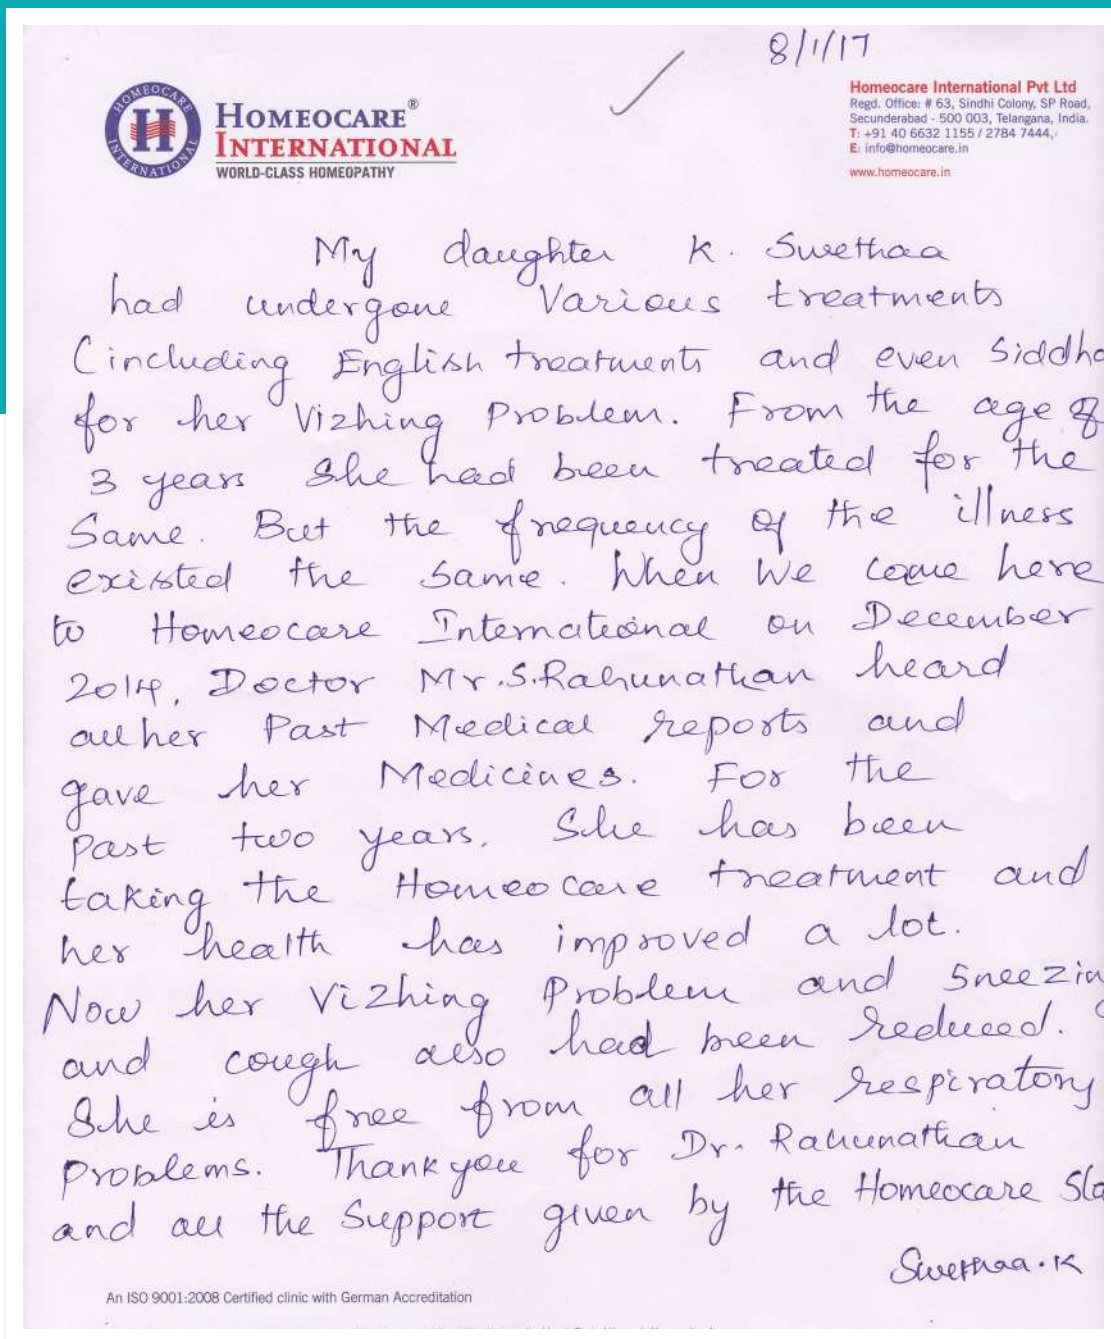 8/1/17
HOMEOCARE INTERNATIONAL
H
HOMEOCARE®
INTERNATIONAL
WORLD-CLASS HOMEOPATHY
Homeocare International Pvt Ltd
Regd. Office: # 63, Sindhi Colony, SP Road,
Secunderabad - 500 003, Telangana, India.
T: +91 40 6632 1155 / 2784 7444,
E: info@homeocare.in
www.homeocare.in
My daughter K. Swethaa
had undergone Various treatments
(including English treatments and even Siddha
for her Vizhing Problem. From the age of
3 years She had been treated for the
Same. But the frequency of the illness
existed the same. When We came here
to Homeocare International on December
2014, Doctor Mr.S.Rahunathan heard
all her Past Medical reports and
gave her Medicines. For the
Past two years. She has been
taking the Homeocare treatment and
her health has improved a lot.
Now her Vizhing Problem and Sneezing
and cough also had been reduced.
She is free from all her respiratory
Problems. Thank you for Dr. Rahunathan
and all the Support given by the Homeocare Sta
Swethaa.K
An ISO 9001:2008 Certified clinic with German Accreditation